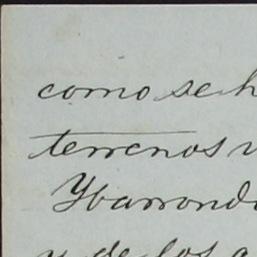 como se h
terrenos v
Ybarrondo
y de los a